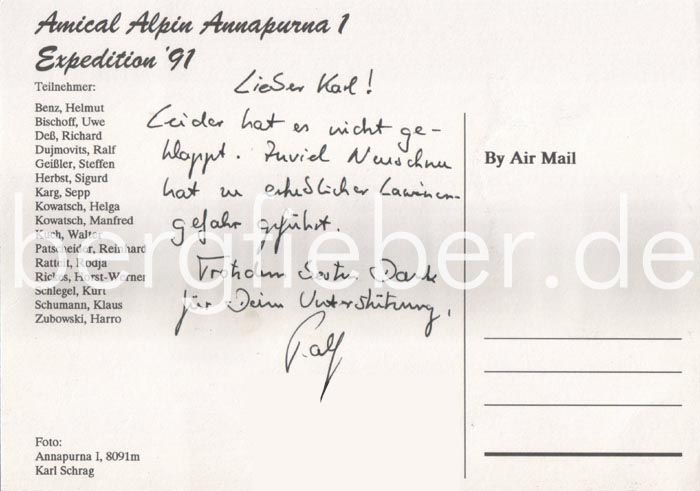 Amical Alpin Annapurna 1
Expedition '91
Teilnehmer:
Benz, Helmut
Bischoff, Uwe
Deß, Richard
Dujmovits, Ralf
Geißler, Steffen
Herbst, Sigurd
Karg, Sepp
Kowatsch, Helga
Kowatsch, Manfred
Kuch, Walter
Patscheider, Reinhard
Ratteit, Rodja
Rickes, Horst-Werner
Schlegel, Kurt
Schumann, Klaus
Zubowski, Harro
Lieber Karl!
Leider hat es nicht ge-
klappt. Zuviel Neuschnee
hat zu erheblicher Lawinen-
gefahr geführt.
Trotzdem besten Dank
für Deine Unterstützung,
Ralf
By Air Mail
Foto:
Annapurna I, 8091m
Karl Schrag
bergfieber.de